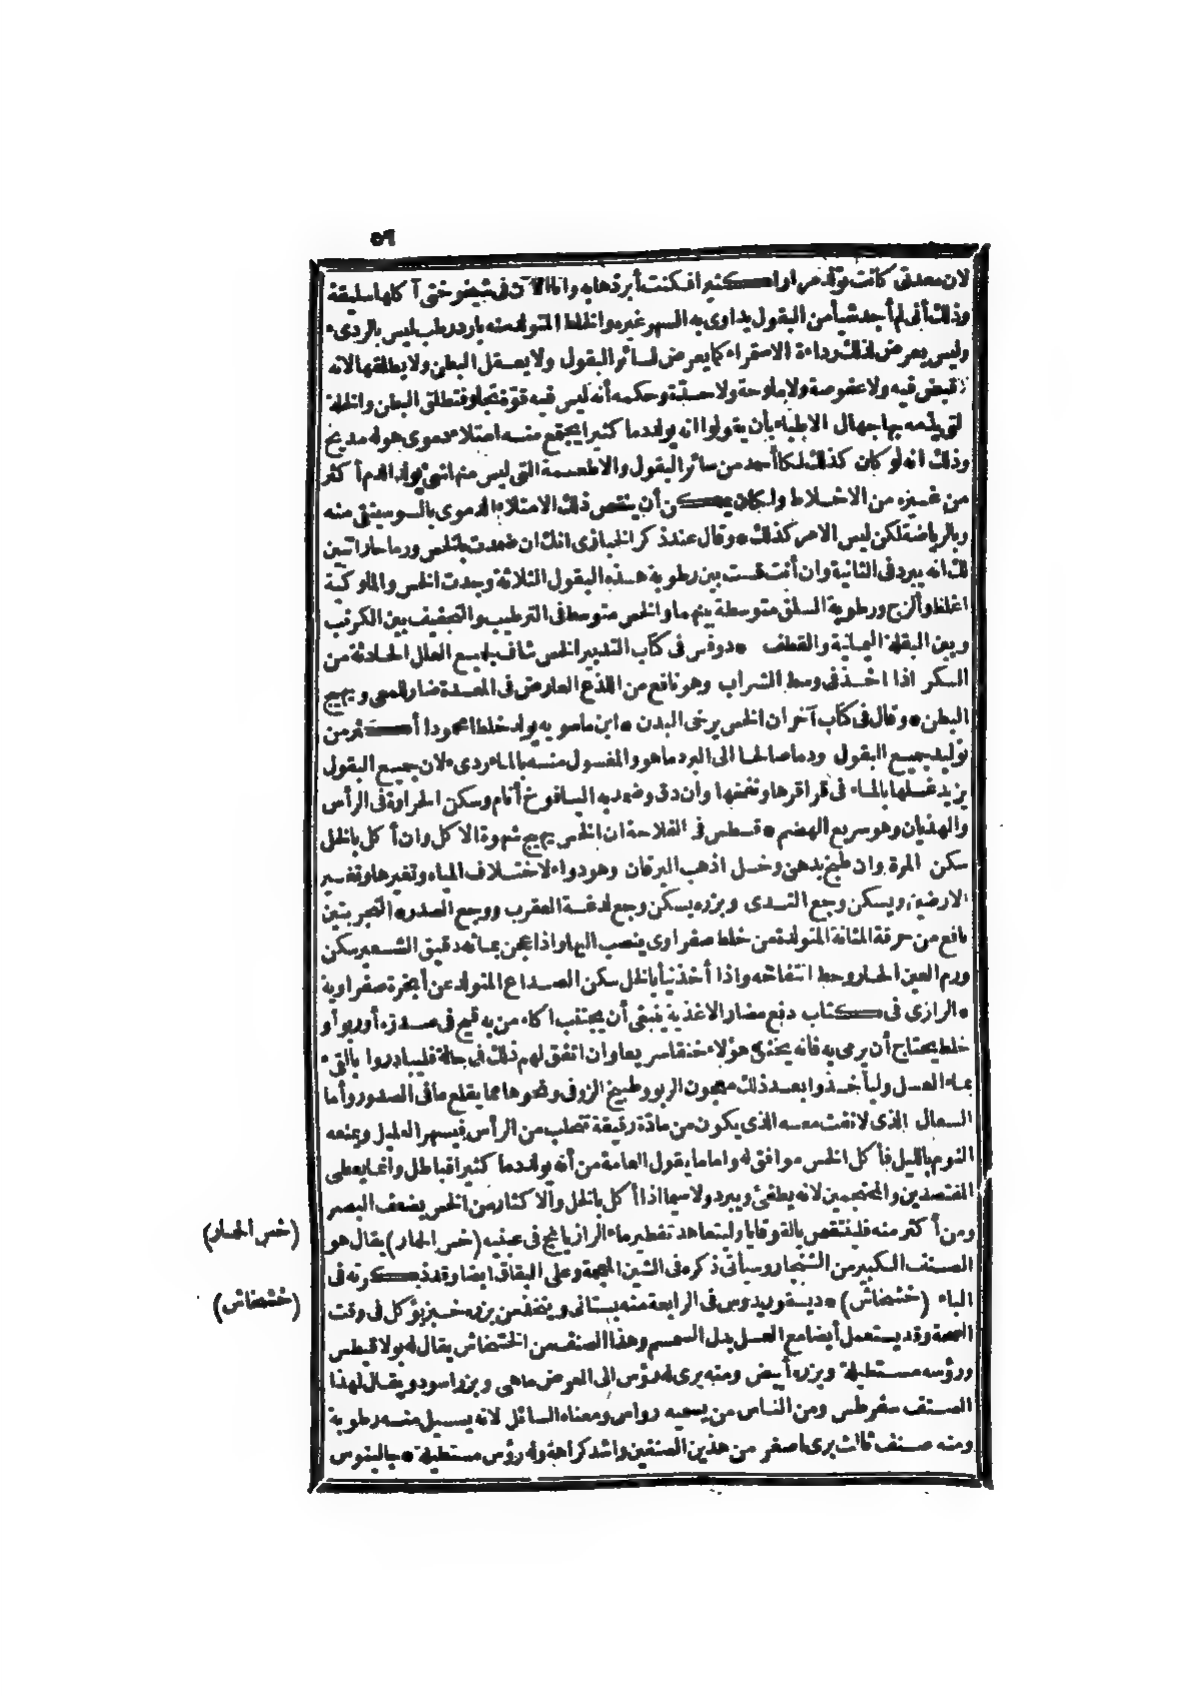 ٢٥
لان معدتى كانت تولد مرارا كثيرا فكنت أبردها به وأما الآن فى شيخوختى آكلها سليقة
وذلك أنى لم أجد شيأ من البقول يداوى به السهر غيره والخلط المتولد منه بارد رطب ليس بالردىء
وليس يعرض لذلك رداءة الاستمراء كما يعرض لسائر البقول ولا يعقل البطن ولا يطلقها لانه
لا قبض فيه ولا عفوصة ولا ملوحة ولا حدّة وحكمه أنه ليس فيه قوّة تجلو فتطلق البطن والخلة
التى يذمه بها جهال الاطباء بأن يقولوا انه يولد دما كثيرا يجتمع منه امتلاء دموى هو له مديح
وذلك انه لو كان كذلك لكان أحمد من سائر البقول والاطعمة التى ليس منها شئ يولد الدم أكثر
من غيره من الاخلاط ولكان يمكن أن ينقص ذلك الامتلاء الدموى باليسير منه
وبالرياضة لكن ليس الامر كذلك * وقال عند ذكر الخبازى انك ان ضمدت بالخس ورما حارا تبين
لك انه يبرد فى الثانية وان أنت قست بين رطوبة هذه البقول الثلاثة وجدت الخس والملوكية
اغلظ وألزج ورطوبة السلق متوسطة بينهما والخس متوسط فى الترطيب والتجفيف بين الكرنب
وبين البقلة اليمانية والقطف * دوفس فى كتاب التدبير الخس شاف لجميع العلل الحادثة من
السكر اذا اخذ فى وسط الشراب وهو نافع من اللذع العارض فى المعدة ضار للمعى ويهيج
البطن * وقال فى كتاب آخر ان الخس يرخى البدن * ابن ماسويه يولد خلطا محمودا أكثر من
توليد جميع البقول ودما صالحا الى البرد ما هو والمغسول منه بالماء ردىء لان جميع البقول
يزيد غسلها بالماء فى قراقرها ونفخها وان دق وضمد به اليافوخ أنام وسكن الحرارة فى الرأس
والهذيان وهو سريع الهضم * قسطس فى الفلاحة ان الخس يهيج شهوة الاكل وان أكل بالخل
سكن المرة وان طبخ بدهن وخل اذهب اليرقان وهو دواء لاختلاف المياه وتغيرها وتغير
الارضين ويسكن وجع الثدى وبزره يسكن وجع لدغة العقرب ووجع الصدر * التجربتين
نافع من حرقة المثانة المتولدة من خلط صفراوى ينصب اليها واذا عجن بمائه دقيق الشعير سكن
ورم العين الحار وحط انتفاخه واذا أخذ نيأ بالخل سكن الصداع المتولد عن أبخرة صفراوية
* الرازى فى كتاب دفع مضار الاغذية ينبغى أن يجتنب اكله من به قيح فى صدره أو ربو أو
خلط يحتاج أن يرمى به فانه يخنق هؤلاء خنقا سريعا وان اتفق لهم ذلك فى حالة فليبادروا بالقىء
بماء العسل وليأخذوا بعد ذلك معجون الربو وطبيخ الزوفى ونحوها مما يقلع ما فى الصدور وأما
السعال الذى لا نفث معه الذى يكون من مادّة رقيقة تتحلب من الرأس فيسهر العليل ويمنعه
النوم بالليل فأكل الخس موافق له واما ما يقول العامة من أنه يولد دما كثيرا فباطل وانما يعطى
المفتصدين والمحتجمين لانه يطفئ ويبرد ولا سيما اذا أكل بالخل والاكثار من الخس يضعف البصر
ومن أكثر منه فلينتقص بالقوقايا وليتعاهد تقطير ماء الرازيانج فى عينيه (خس الحمار) يقال هو
الصنف الكبير من الشنجار وسيأتى ذكره فى الشين المعجمة وعلى البقاق ايضا وقد ذكرته فى
الباء (خشخاش) * ديسقوريدوس فى الرابعة منه بستانى ويتخذ من بزره خبز يؤكل فى وقت
الصحة وقد يستعمل أيضا مع العسل بدل السمسم وهذا الصنف من الخشخاش يقال له بولاقيطس
ورؤسه مستطيلة وبزره أبيض ومنه برى له رؤس الى العرض ماهى وبزر اسود ويقال لهذا
الصنف سقرطس ومن الناس من يسميه رواس ومعناه السائل لانه يسيل منه رطوبة
ومنه صنف ثالث برى اصغر من هذين الصنفين واشد كراهة وله رؤس مستطيلة * جالينوس
(خس الحمار)
(خشخاش)